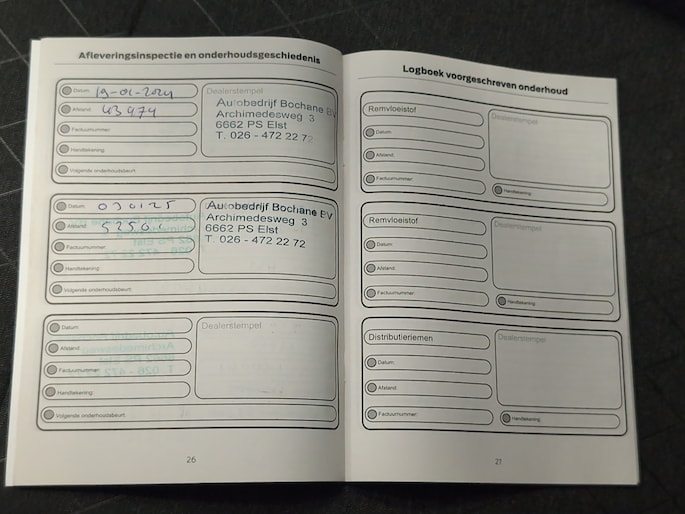 Afleveringsinspectie en onderhoudsgeschiedenis
Datum: 19-01-2024
Afstand: 43474
Factuurnummer:
Handtekening:
Volgende onderhoudsbeurt:
Dealerstempel
Autobedrijf Bochane BV
Archimedesweg 3
6662 PS Elst
T. 026 - 472 22 72
Datum: 030125
Afstand:
Factuurnummer:
Handtekening:
Volgende onderhoudsbeurt:
Autobedrijf Bochane BV
Archimedesweg 3
6662 PS Elst
T. 026 - 472 22 72
Datum:
Afstand:
Factuurnummer:
Handtekening:
Volgende onderhoudsbeurt:
Dealerstempel
26
Logboek voorgeschreven onderhoud
Remvloeistof
Datum:
Afstand:
Factuurnummer:
Dealerstempel
Handtekening:
Remvloeistof
Datum:
Afstand:
Factuurnummer:
Dealerstempel
Handtekening:
Distributieriemen
Datum:
Afstand:
Factuurnummer:
Dealerstempel
Handtekening: